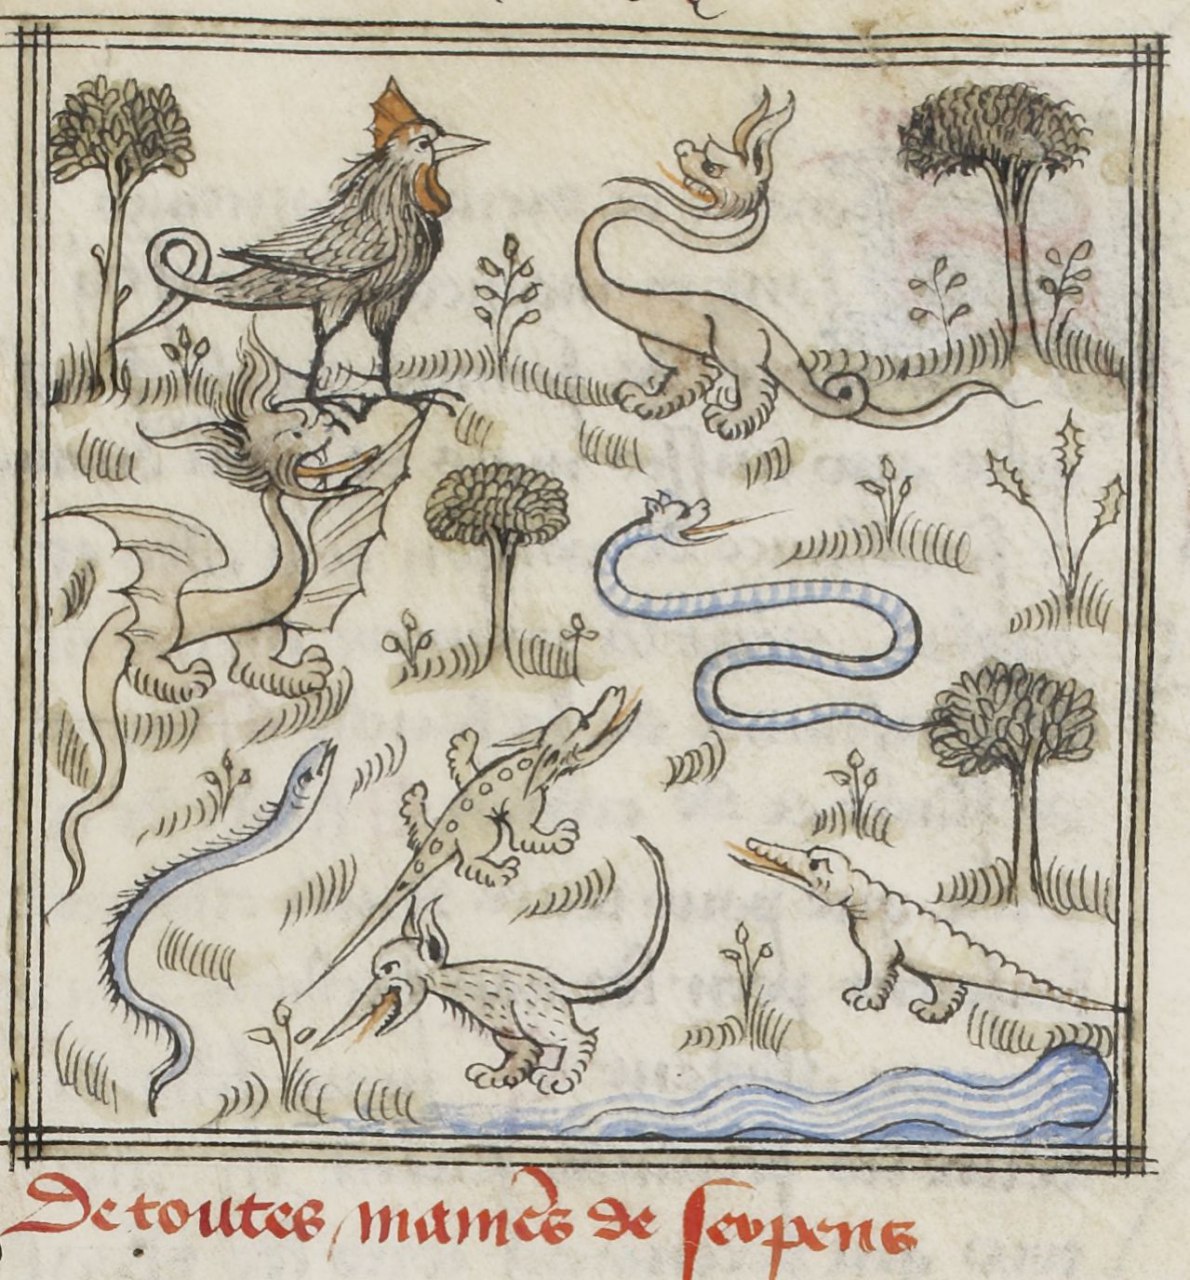 De toutes manieres de serpens